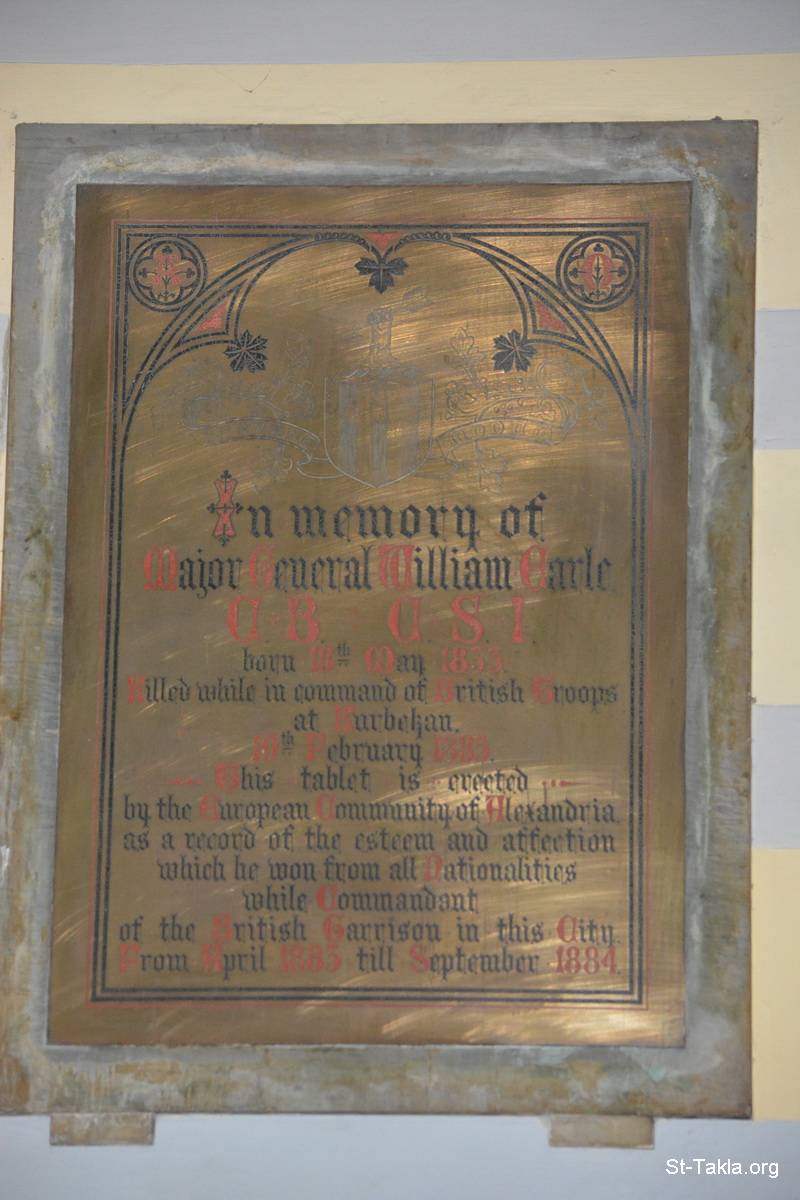 In memory of
Major General William Earle
C. B. C. S. I.
born 18th May 1833.
Killed while in command of British Troops
at Kurbekan.
10th February 1885.
This tablet is erected
by the European Community of Alexandria.
as a record of the esteem and affection
which he won from all Nationalities
while Commandant
of the British Garrison in this City.
From April 1883 till September 1884.
St-Takla.org